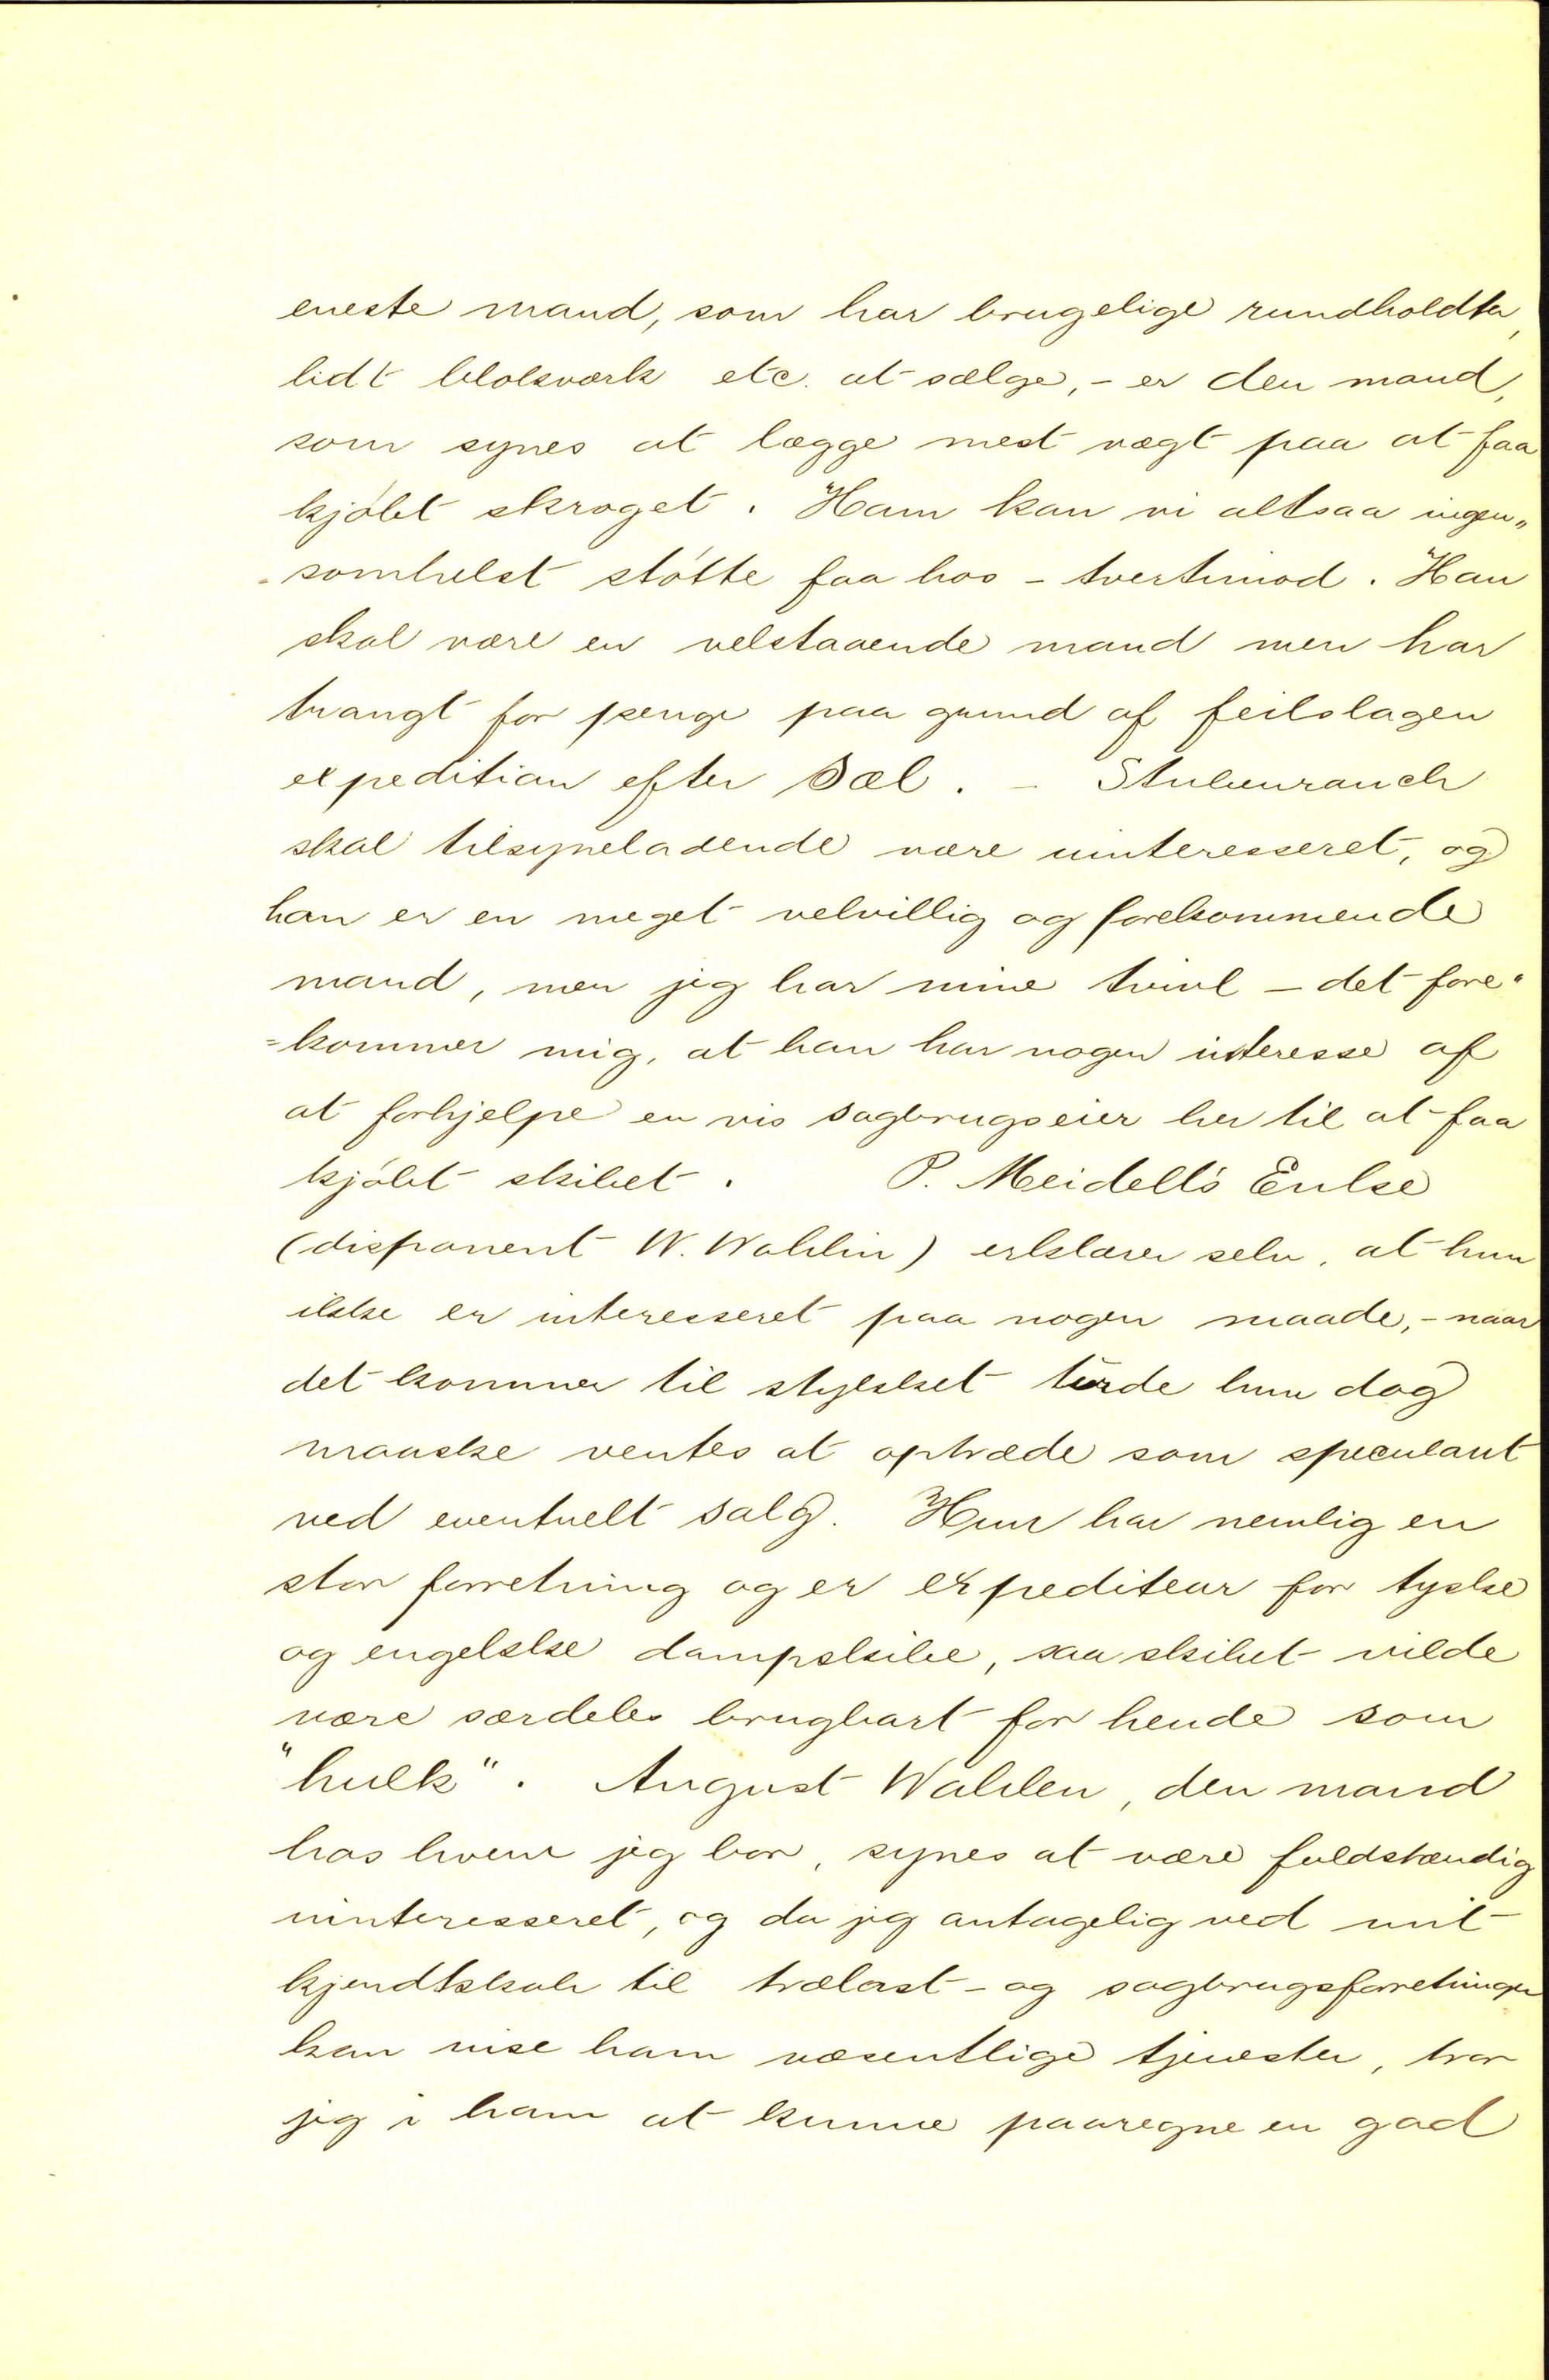 eneste mand, som har brugelige rundholdter,
lidt blokværk etc. at sælge, - er den mand,
som synes at lægge mest vægt paa at faa
kjøbt skroget. Ham kan vi altsaa ingen„
-somhelst støtte faa hos - tvertimod. Han
skal være en velstaaende mand men har
trangt for penge paa grund af feilslagen
expedition efter Sæl. - Stubenrauch
skal tilsyneladende være uinteresseret, og
han er en meget velvillig og forekommende
mand, men jeg har mine tvivl - det fore„
=kommer mig, at han har nogen interesse af
at forhjelpe en vis sagbrugseier her til at faa
kjøbt skibet. P. Meidells Enke
(disponent W. Wahlin) erklærer selv, at hun
ikke er interesseret paa nogen maade, - naar
det kommer til stykket turde hun dog
maaske ventes at optræde som speculant
ved eventuelt salg. Hun har nemlig en
stor forretning og er expediteur for tyske
og engelske dampskibe, saa skibet vilde
være særdeles brugbart for hende som
"hulk". August Wahlen, den mand
hos hvem jeg bor, synes at være fuldstændig
uinteresseret, og da jeg antagelig ved mit
kjendtskab til trælast- og sagbrugsforretninger
kan vise ham væsentlige tjenester, tror
jeg i ham at kunne paaregne en god